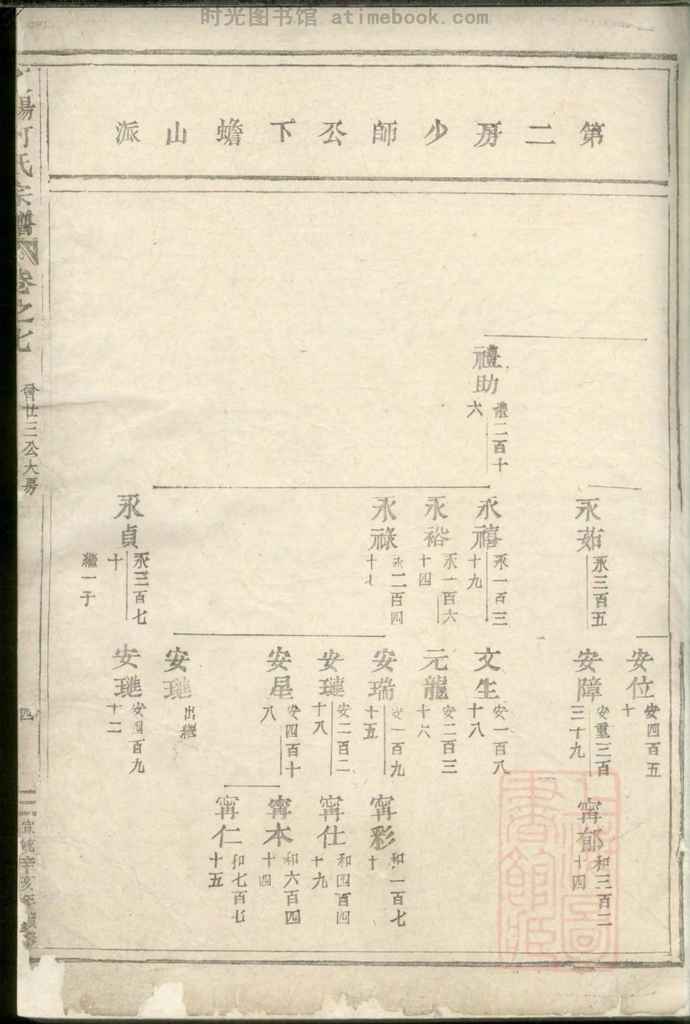 时光图书馆 atimebook.com
第二房少師公下蟾山派
禮助
禮二百十
六
汞茹
汞三百五
汞禧
汞一百三
十九
汞裕
汞一百六
十四
汞祿
汞二百四
十七
汞貞
汞三百七
十
繼一子
安位
安四百五
十
安障
安重三百
三十九
文生
安一百八
十八
元龍
安二百三
十六
安瑞
安一百九
十五
安璉
安二百二
十八
安星
安四百十
八
安璡
出繼
安璡
安四百九
十二
甯郁
和三百二
十四
甯彩
和一百七
十
甯仕
和四百四
十九
甯本
和六百四
十四
甯仁
和七百七
十五
氏宗譜
卷之七
曾廿三公大房
四